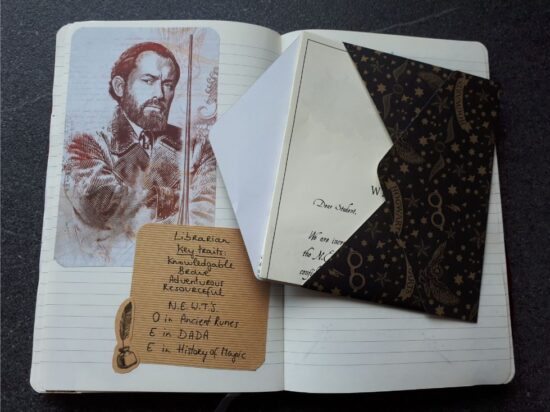 Librarian
Key traits:
Knowledgable
Brave
Adventurous
Resourceful
N.E.W.T.'s
O in Ancient Runes
E in DADA
E in History of Magic
W
Dear Student,
We are
the